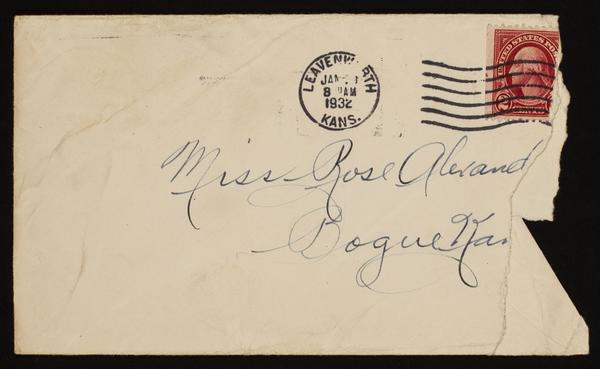 LEAVENWORTH
JAN
8 AM
1932
KANS.
UNITED STATES POS
Miss Rose Alexand
Bogue Kan